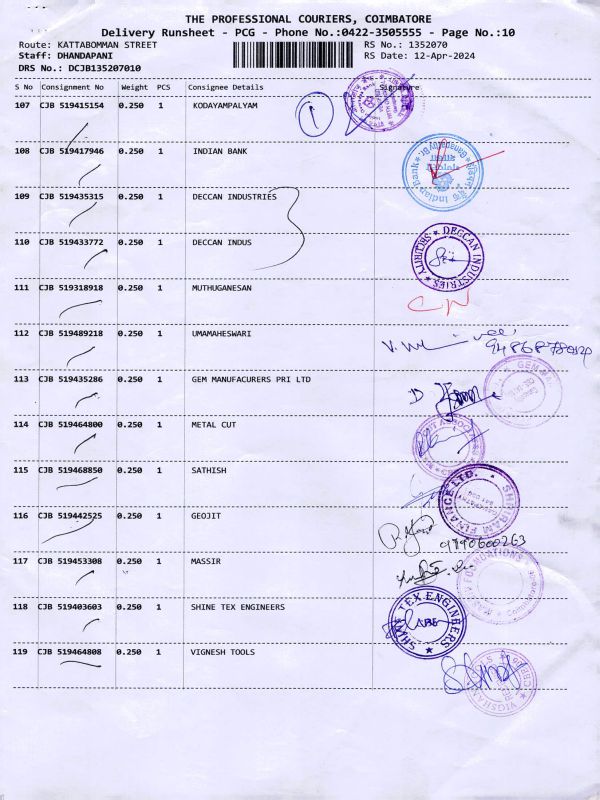 THE PROFESSIONAL COURIERS, COIMBATORE
Delivery Runsheet - PCG - Phone No.:0422-3505555 - Page No.:10
Route: KATTABOMMAN STREET RS No.: 1352070
Staff: DHANDAPANI RS Date: 12-Apr-2024
DRS No.: DCJB135207010
S No Consignment No Weight PCS Consignee Details Signature
107 CJB 519415154 0.250 1 KODAYAMPALYAM 1
108 CJB 519417946 0.250 1 INDIAN BANK
Indian Bank
109 CJB 519435315 0.250 1 DECCAN INDUSTRIES
110 CJB 519433772 0.250 1 DECCAN INDUS
DECCAN INDUSTRIES
111 CJB 519318918 0.250 1 MUTHUGANESAN
112 CJB 519489218 0.250 1 UMAMAHESWARI
113 CJB 519435286 0.250 1 GEM MANUFACURERS PRI LTD
114 CJB 519464800 0.250 1 METAL CUT
115 CJB 519468850 0.250 1 SATHISH
SHRIRAM FINANCE LTD.
116 CJB 519442525 0.250 1 GEOJIT
9790600263
117 CJB 519453308 0.250 1 MASSIR
FOUNDATIONS
118 CJB 519403603 0.250 1 SHINE TEX ENGINEERS
SHINE TEX ENGINEERS
119 CJB 519464808 0.250 1 VIGNESH TOOLS